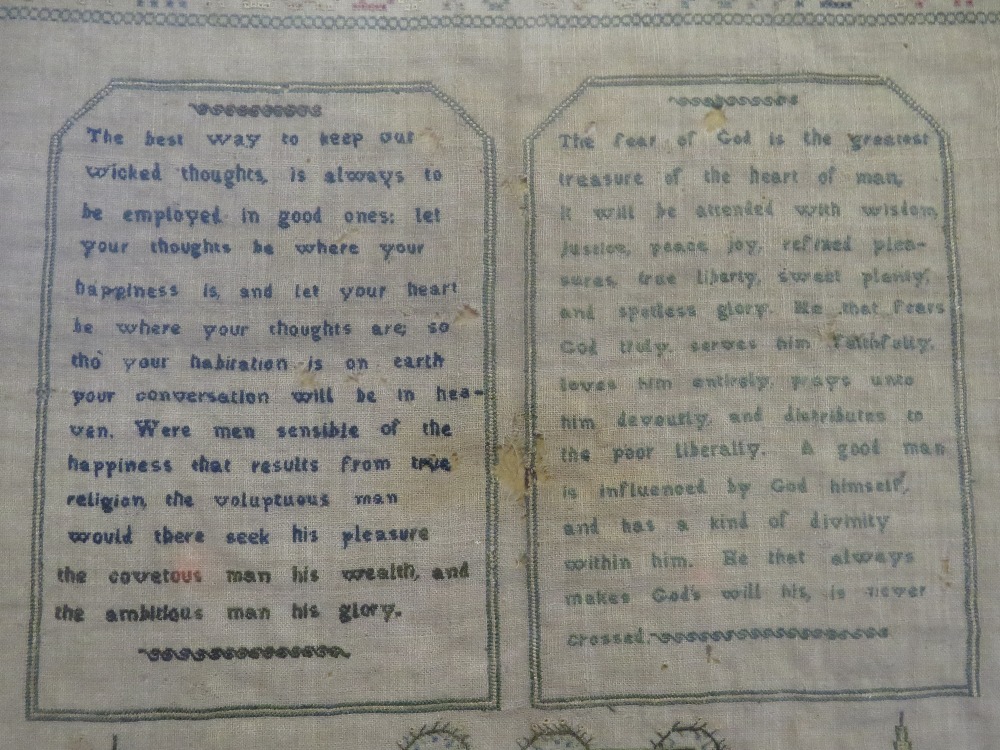 The best way to keep our
wicked thoughts, is always to
be employed in good ones: let
your thoughts be where your
happiness is, and let your heart
be where your thoughts are; so
tho' your habitation is on earth
your conversation will be in hea-
ven. Were men sensible of the
happiness that results from true
religion, the voluptuous man
would there seek his pleasure
the covetous man his wealth, and
the ambitious man his glory.
The fear of God is the greatest
treasure of the heart of man,
it will be attended with wisdom,
justice, peace joy, refined plea-
sures, true liberty, sweet plenty,
and spotless glory. He that fears
God truly, serves him faithfully,
loves him entirely, prays unto
him devoutly, and distributes to
the poor liberally. A good man
is influenced by God himself,
and has a kind of divinity
within him. He that always
makes God's will his, is never
crossed.